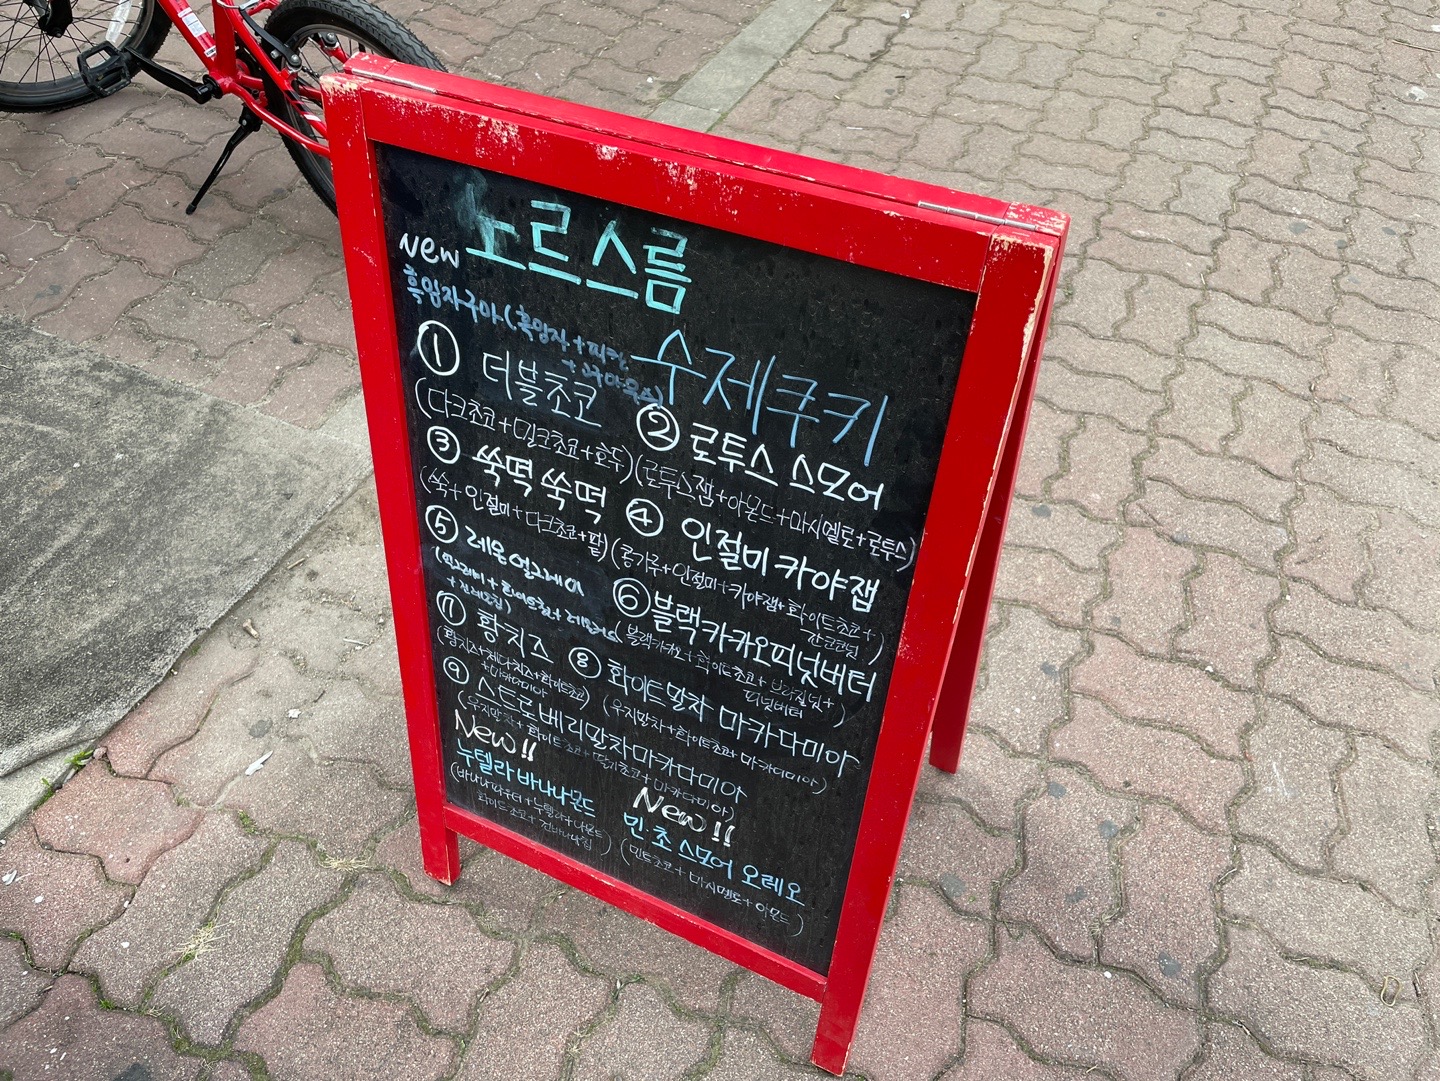 노르스름
수제쿠키
New
흑임자구마 (흑임자+피칸
+고구마무스)
① 더블초코
(다크초코+밀크초코+호두)
② 로투스 스모어
(로투스잼+아몬드+마시멜로+로투스)
③ 쑥떡쑥떡
(쑥+인절미+다크초코+팥)
④ 인절미카야잼
(콩가루+인절미+카야잼+화이트초코+
코코넛)
⑤ 레몬얼그레이
(얼그레이+화이트초코+레몬
⑥ 블랙카카오피넛버터
(블랙카카오+화이트초코+브라질넛+
피넛버터)
⑦ 황치즈
(황치즈+체다치즈+화이트초코
+마카다미아)
⑧ 화이트말차 마카다미아
(우지말차+화이트초코+마카다미아)
⑨ 스트로베리말차마카다미아
(우지말차+화이트초코+딸기초코+마카다미아)
New!!
누텔라바나나몬드
(바나나파우더+누텔라+아몬드
화이트초코+건바나나칩)
New!!
민·초 스모어 오레오
(민트초코+마시멜로+아몬드)